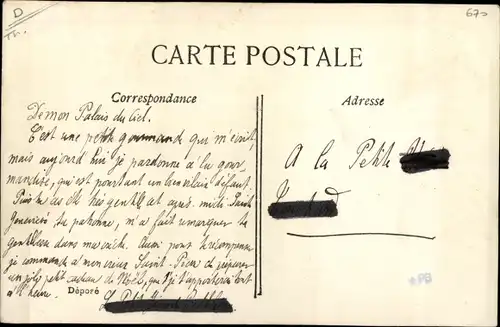 D
670
CARTE POSTALE
Correspondance
Adresse
De mon Palais du Ciel.
C'est une petite gourmande qui m'écrit,
mais aujourd'hui je pardonne à la gour-
mandise, qui est pourtant un bien vilain défaut.
Puis tu as été très gentille cet après-midi. Sainte
Geneviève ta patronne, m'a fait remarquer ta
gentillesse dans ma crèche. Aussi pour te récompenser
je commande à mon vieux Saint-Pierre de préparer
un joli petit cadeau de Noël, que j'apporterai tout
à l'heure.
Déposé
Le Petit
A la Petite